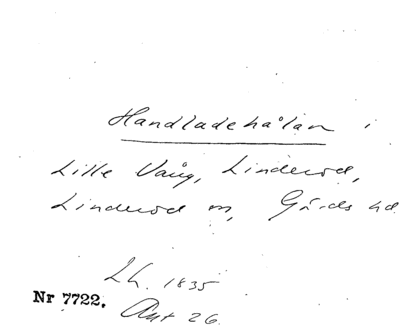 Handladehålan i
Lille Vång, Linderöd,
Linderöd sn, Gärds hd.
Lh. 1835
Nr 7722.
Ant 26.